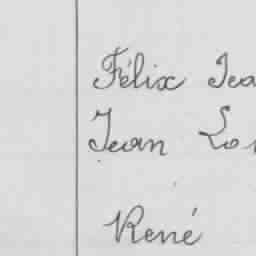 Félix Jea
Jean Lou
René